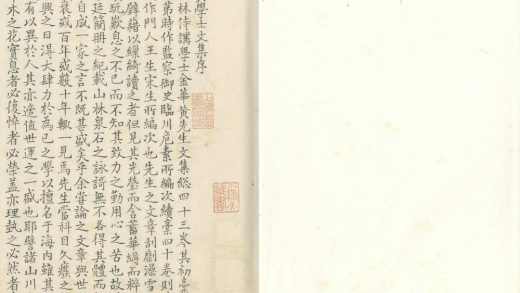 學士文集序
林侍講學士金華黃先生文集總四十三卷其初藁
弟時作監察御史臨川危素所編次續藁四十卷則
作門人王生宋生所編次也先生之文章刮劘澡雪
辟藉以繅綺讀之者但見其光瑩而含蓄華縟而粹
玩歎息之不已而不知其致力之勤用心之苦也故
廷簡冊之紀載山林泉石之詠謌無不各得其體而
自成一家之言不既甚盛矣乎余嘗論之文章與世
衰或百年或數十年輒一見焉先生當科目久廢之
興之日淂大肆力於為己之學以擅名于海內雖其
有以異於人其亦適值世運之一盛也耶譬諸山川
木之花實息者必復悴者必榮盖亦理埶之必然者